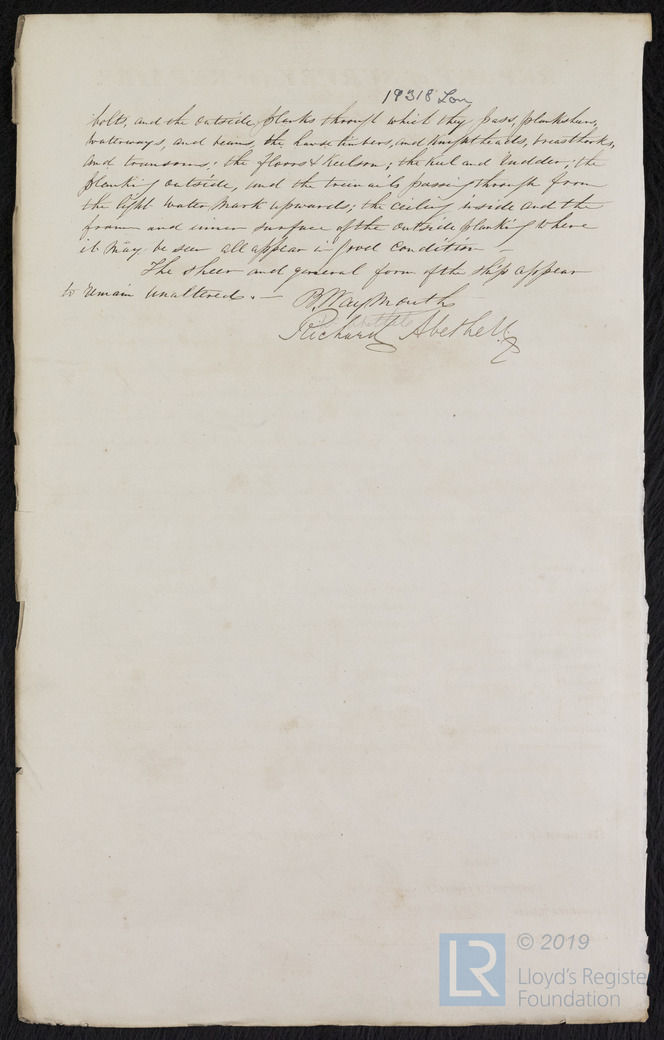 19318 Lon
bolts, and the outside planks through which they pass, planksheers,
waterways, and beams, the hawse timbers, and Knightheads, breasthooks,
and transoms; the floors & Keelson; the Keel and Rudder; the
planking outside, and the treenails passing through from
the light water mark upwards; the ceiling inside and the
frame and inner surface of the outside planking where
it may be seen all appear in good condition —
The sheer and general form of the ship appear
to remain unaltered. —
B. Waymouth
Richard Abethell
© 2019
LR
Lloyd's Registe
Foundation